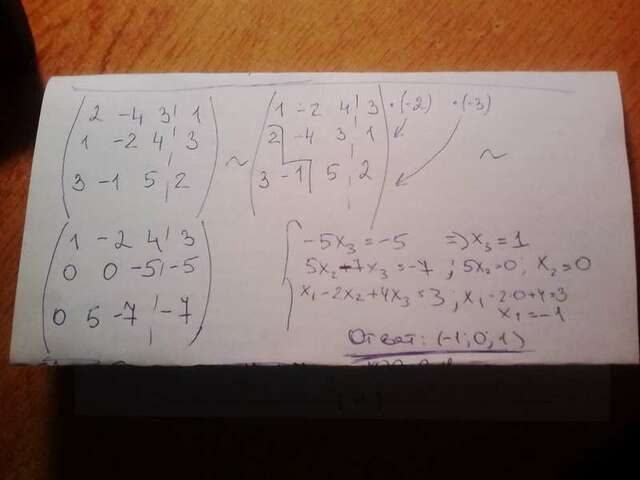 2 -4 3 | 1
1 -2 4 | 3
3 -1 5 | 2
~
1 -2 4 | 3 ·(-2) ·(-3)
2 -4 3 | 1
3 -1 5 | 2
~
1 -2 4 | 3
0 0 -5 | -5
0 5 -7 | -7
-5x₃ = -5 => x₃ = 1
5x₂ - 7x₃ = -7 ; 5x₂ = 0 ; x₂ = 0
x₁ - 2x₂ + 4x₃ = 3 ; x₁ - 2·0 + 4 = 3
x₁ = -1
Ответ: (-1; 0; 1)